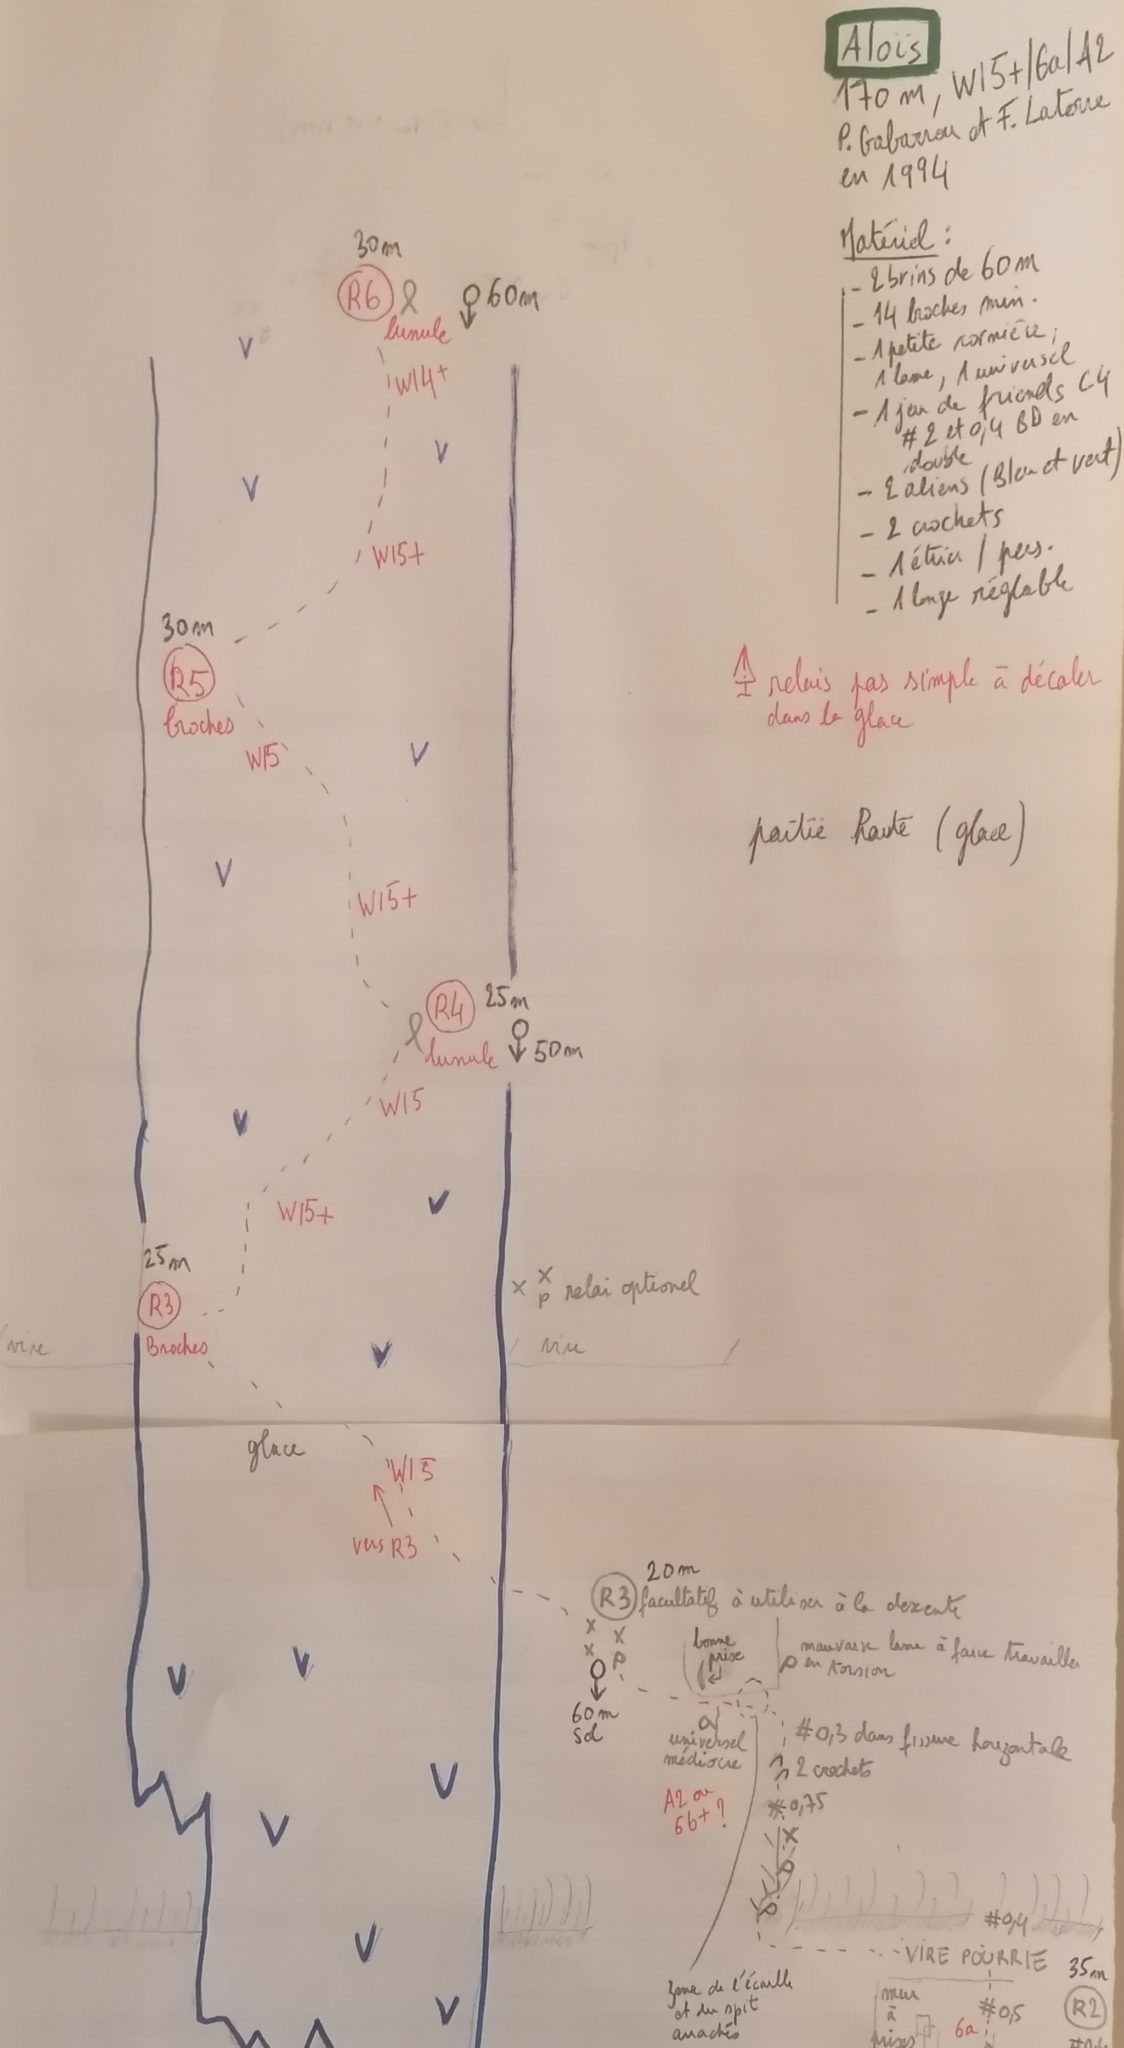 Aloïs
170m, WI5+/6a/A2
P. Gabarrou et F. Latorre
en 1994
Matériel :
- 2 brins de 60m
- 14 broches min.
- 1 petite cornière,
1 lame, 1 universel
- 1 jeu de friends C4
#2 et 0,4 BD en
double
- 2 aliens (Bleu et vert)
- 2 crochets
- 1 étrier / pers.
- 1 longe réglable
30m
R6
60m
lunule
WI4+
WI5+
30m
R5
broches
WI5
relais pas simple à décaler
dans la glace
partie haute (glace)
WI5+
R4
25m
lunule
50m
WI5
WI5+
25m
R3
Broches
vire
x x p relai optionel
vire
glace
WI5
vers R3
20m
R3 facultatif à utiliser à la descente
x x
x p
60m
sol
bonne
prise
mauvaise lame à faire travailler
en torsion
universel
médiocre
#0,3 dans fissure horizontale
2 crochets
#0,75
A2 ou
6b+ ?
x
#0,4
VIRE POURRIE
35m
R2
zone de l'écaille
et du spit
arrachés
mur
à
prises
6a
#0,5